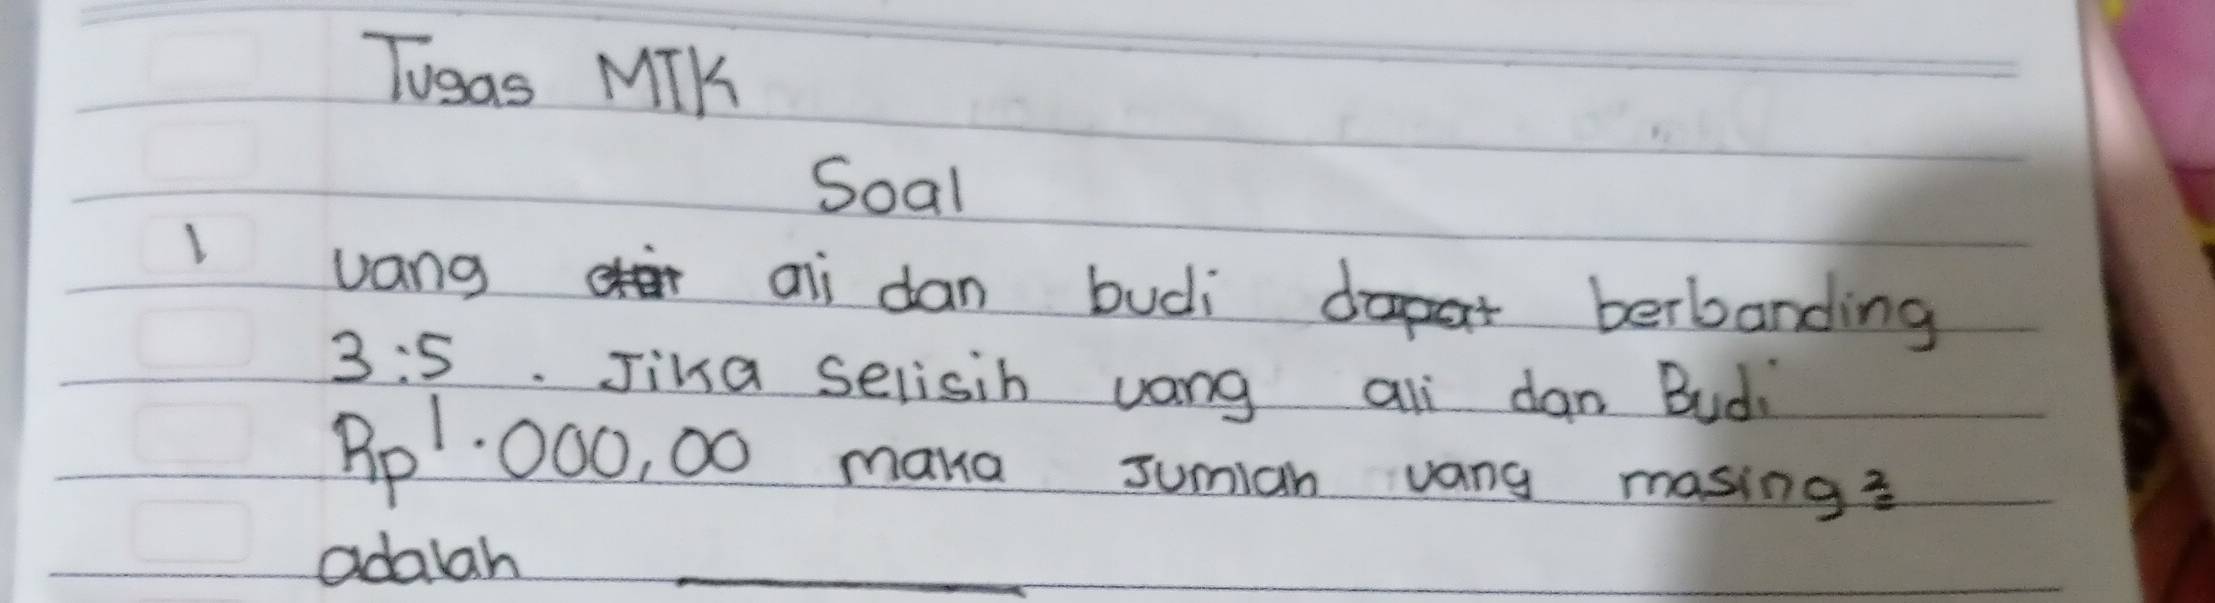 Tugas MTK
Soal
1 uang ali dan budi dapat berbanding
3:5. Jika selisih uang ali dan Budi
Rp 1.000,00 maka Jumlah uang masing2
adalah ___